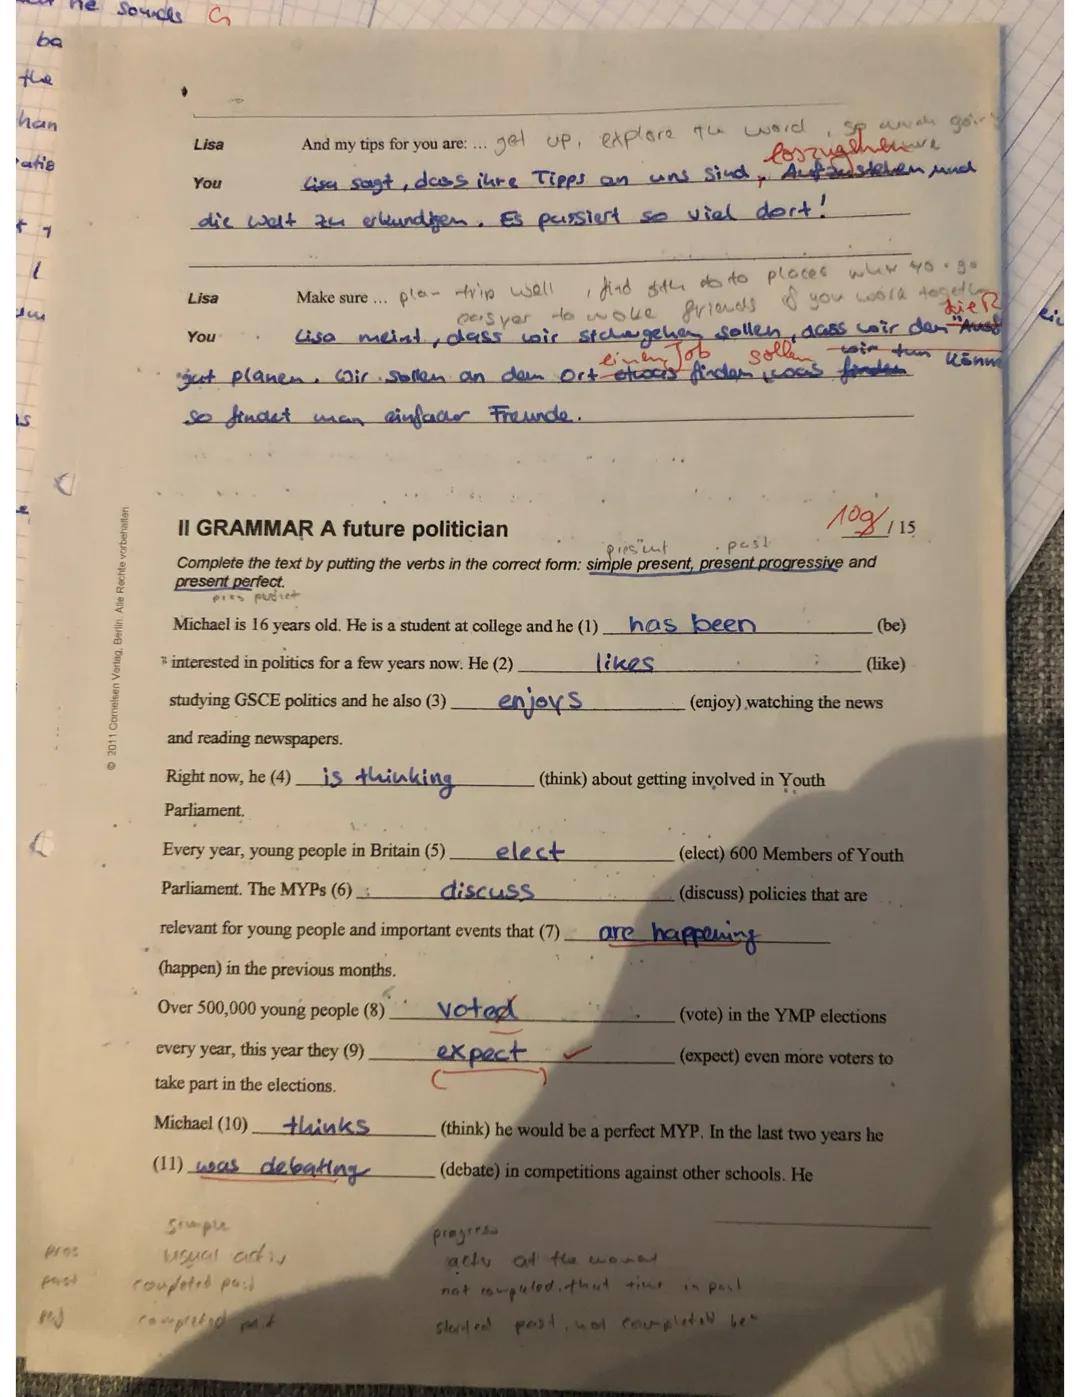 he sounds G
ba
the
han
Lisa And my tips for you are: ... get up, explore the word, so much going
loszugehen
You Lisa sagt, dass ihre Tipps an uns sind, Aufzustehen und
die Welt zu erkundigen. Es passiert so viel dort!
Lisa Make sure ... plan trip well, find places
to make friends if you work together
You Lisa meint, dass wir sichergehen sollen, dass wir den
einen Job sollen wir tun
gut planen. Wir sollen an dem Ort etwas finden, was finden könn
so findet man einfacher Freunde.
© 2011 Cornelsen Verlag, Berlin. Alle Rechte vorbehalten.
II GRAMMAR A future politician / 15
present past
Complete the text by putting the verbs in the correct form: simple present, present progressive and
present perfect.
Michael is 16 years old. He is a student at college and he (1) has been (be)
interested in politics for a few years now. He (2) likes (like)
studying GSCE politics and he also (3) enjoys (enjoy) watching the news
and reading newspapers.
Right now, he (4) is thinking (think) about getting involved in Youth
Parliament.
Every year, young people in Britain (5) elect (elect) 600 Members of Youth
Parliament. The MYPs (6) discuss (discuss) policies that are
relevant for young people and important events that (7) are happening
(happen) in the previous months.
Over 500,000 young people (8) voted (vote) in the YMP elections
every year, this year they (9) expect (expect) even more voters to
take part in the elections.
Michael (10) thinks (think) he would be a perfect MYP. In the last two years he
(11) was debating (debate) in competitions against other schools. He
simple progress
pres usual activ activ at the moment
past completed past not completed, that time in past
completed past started past, not completed